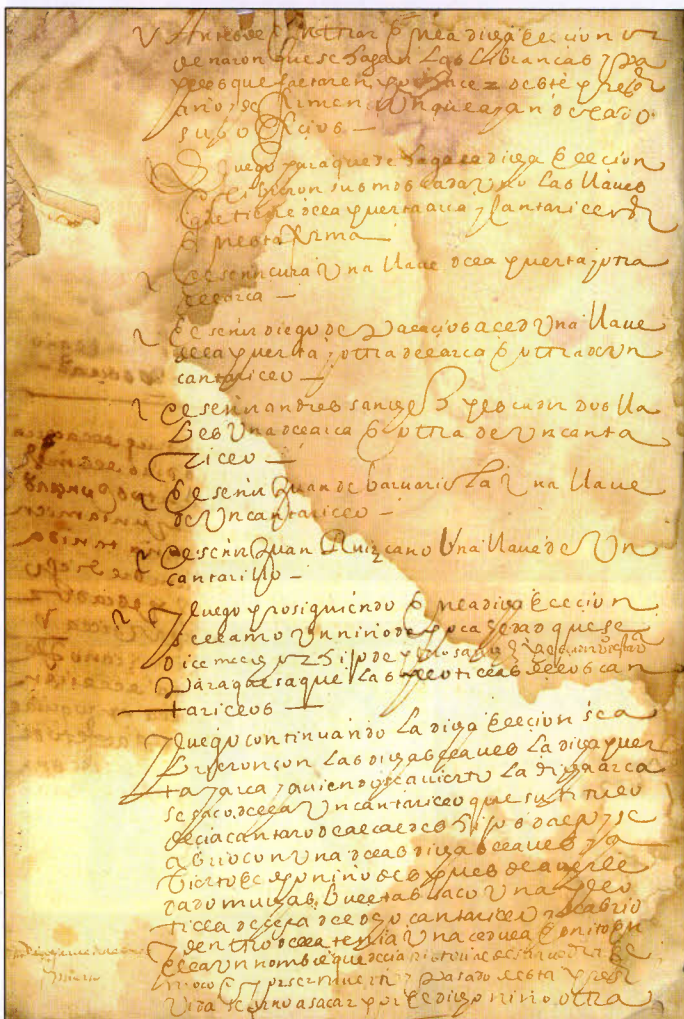 Antes de entrar en la dicha eleccion
denaron que se hagan las libranças y pa
peles que faltaren por hacer deste presente
año se firmen aunque ayan dexado
sus oficios —
E luego para que se haga la dicha eleccion
exibieron sus mds cada uno las llaves
que tiene de la puerta arca y cantarillos
en esta forma
el señor cura Una llave de la puerta y otra
del arca —
El señor diego de Palacios alcalde Una llave
de la puerta y otra del arca e otra de un
cantarillo —
el señor andres sanchez dos lla
bes Una del arca e otra de Un canta
rillo —
El señor Juan de barvariola Una llave
de Un cantarillo —
el señor Juan Ruiz cano Una llave de Un
cantarillo —
E luego prosiguiendo en la dicha eleccion
se llamo Un niño de poca hedad que se
dice hijo de
Para que saque las pelotillas de los can
tarillos —
E luego continuando la dicha eleccion se a
brieron con las dichas llaves la dicha puer
ta y arca y aviendose avierto la dicha arca
se saco della Un cantarillo que su titulo
decia cantaro de alcaldes hijos dalgo y se
abrio con Una de las dichas llaves y a
bierto el dicho niño despues de averle
dado muchas bueltas saco Una pelo
tilla de cera del dicho cantarillo y se abrio
y dentro della tenia Una cedula escrito en
ella Un nombre que decia
moço e por ser muerto y Pasado desta presente
Vida se torno a sacar por el dicho niño otra